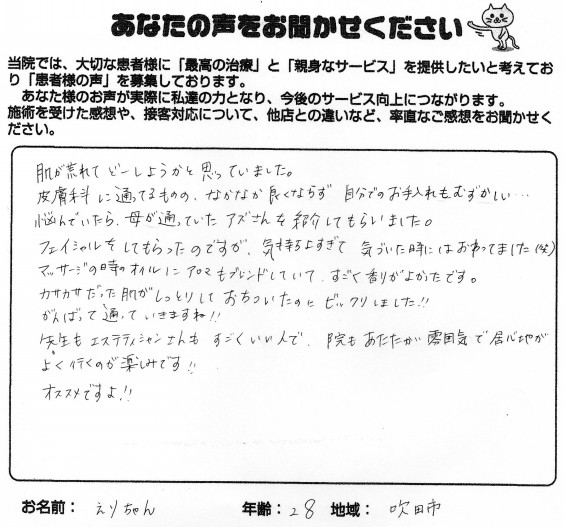 あなたの声をお聞かせください
当院では、大切な患者様に「最高の治療」と「親身なサービス」を提供したいと考えてお
り「患者様の声」を募集しております。
あなた様のお声が実際に私達の力となり、今後のサービス向上につながります。
施術を受けた感想や、接客対応について、他店との違いなど、率直なご感想をお聞かせく
ださい。
肌が荒れて どーしようかと思っていました。
皮膚科に通ってるものの、なかなか良くならず 自分でのお手入れもむずかしい…
悩んでいたら、母が通っていた アズさんを紹介してもらいました。
フェイシャルをしてもらったのですが、気持ちよすぎて 気づいた時にはおわってました(笑)
マッサージの時のオイルにアロマもブレンドしていて、すごく香りがよかったです。
カサカサだった肌がしっとりして おちついたのにビックリしました!!
がんばって通っていきますね!!
先生もエステティシャンさんも すごくいい人で、院もあたたかい雰囲気で居心地が
よく行くのが楽しみです!!
オススメですよ!!
お名前： えりちゃん 年齢：28 地域： 吹田市